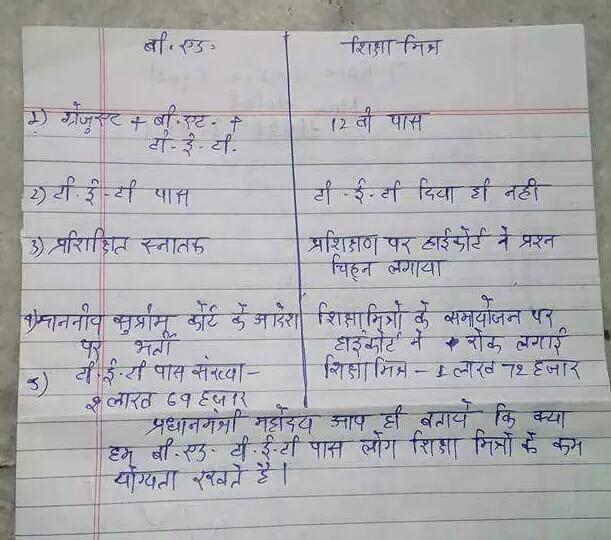 बी.एड. शिक्षा मित्र
1) ग्रेजुएट + बी.एड. + 12 वी पास
टी.ई.टी.
2) टी.ई.टी पास टी.ई.टी दिया ही नही
3) प्रशिक्षित स्नातक प्रशिक्षण पर हाईकोर्ट ने प्रश्न
चिह्न लगाया
4) माननीय सुप्रीम कोर्ट के आदेश शिक्षामित्रों के समायोजन पर
पर भर्ती हाईकोर्ट ने रोक लगाई
5) टी.ई.टी पास संख्या- शिक्षा मित्र - 1 लाख 72 हजार
2 लाख 69 हजार
प्रधानमंत्री महोदय आप ही बतायें कि क्या
हम बी.एड. टी.ई.टी पास लोग शिक्षा मित्रों के कम
योग्यता रखते है।